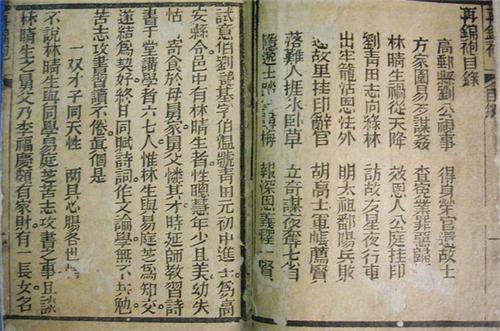 再錦袍目錄
高郵縣劉公祠事　得身榮官還故土
方家園易芝謀姦　查寃業罪
林晴生禍從天降　效恩人公庭挂印
劉青田志向綠林　訪故友星夜行車
出牢籠怙恩法外　明太祖鄱陽兵敗
返故里挂印辭官　胡高士軍帳薦賢
落難人捱水卧草　立奇謀夜奪七省
隱逸士　梅　報深恩義釋一賢
試意伯劉諱基字伯溫號青田元初中進士爲高
安縣令邑中有林晴生者性聰慧年少且美幼失
怙　寄食於母舅家舅父憐其才時延師教習詩
書于堂講學者六七人惟林生與易庭芝爲知交
遂結爲契好終日同賦詩詞作文論學無不共勉
苦志攻書習讀不倦眞個是
一双才子同天性　両且心腸各世
不説林晴生與同學易庭芝苦志攻書之事且談
林晴生之舅父乃李福慶頗有家財有一長女名